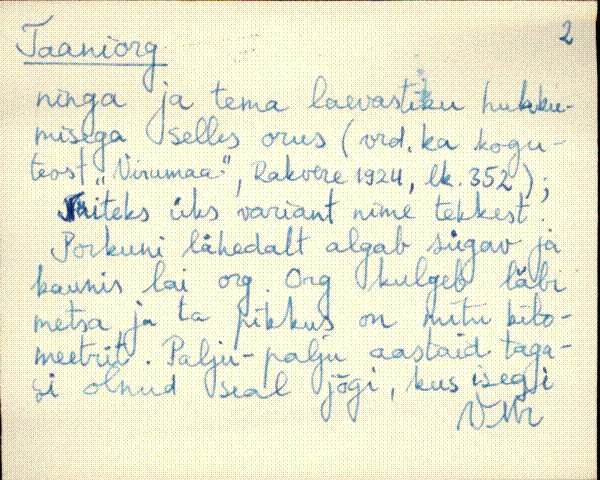 Taaniorg
2
ninga ja tema laevastiku hukku-
misega selles orus (vrd. ka kogu-
teost „Virumaa”, Rakvere 1924, lk. 352);
Näiteks üks variant nime tekkest:
Porkuni lähedalt algab sügav ja
kaunis lai org. Org kulgeb läbi
metsa ja ta pikkus on mitu kilo-
meetrit. Palju-palju aastaid taga-
si olnud seal jõgi, kus isegi
VMr